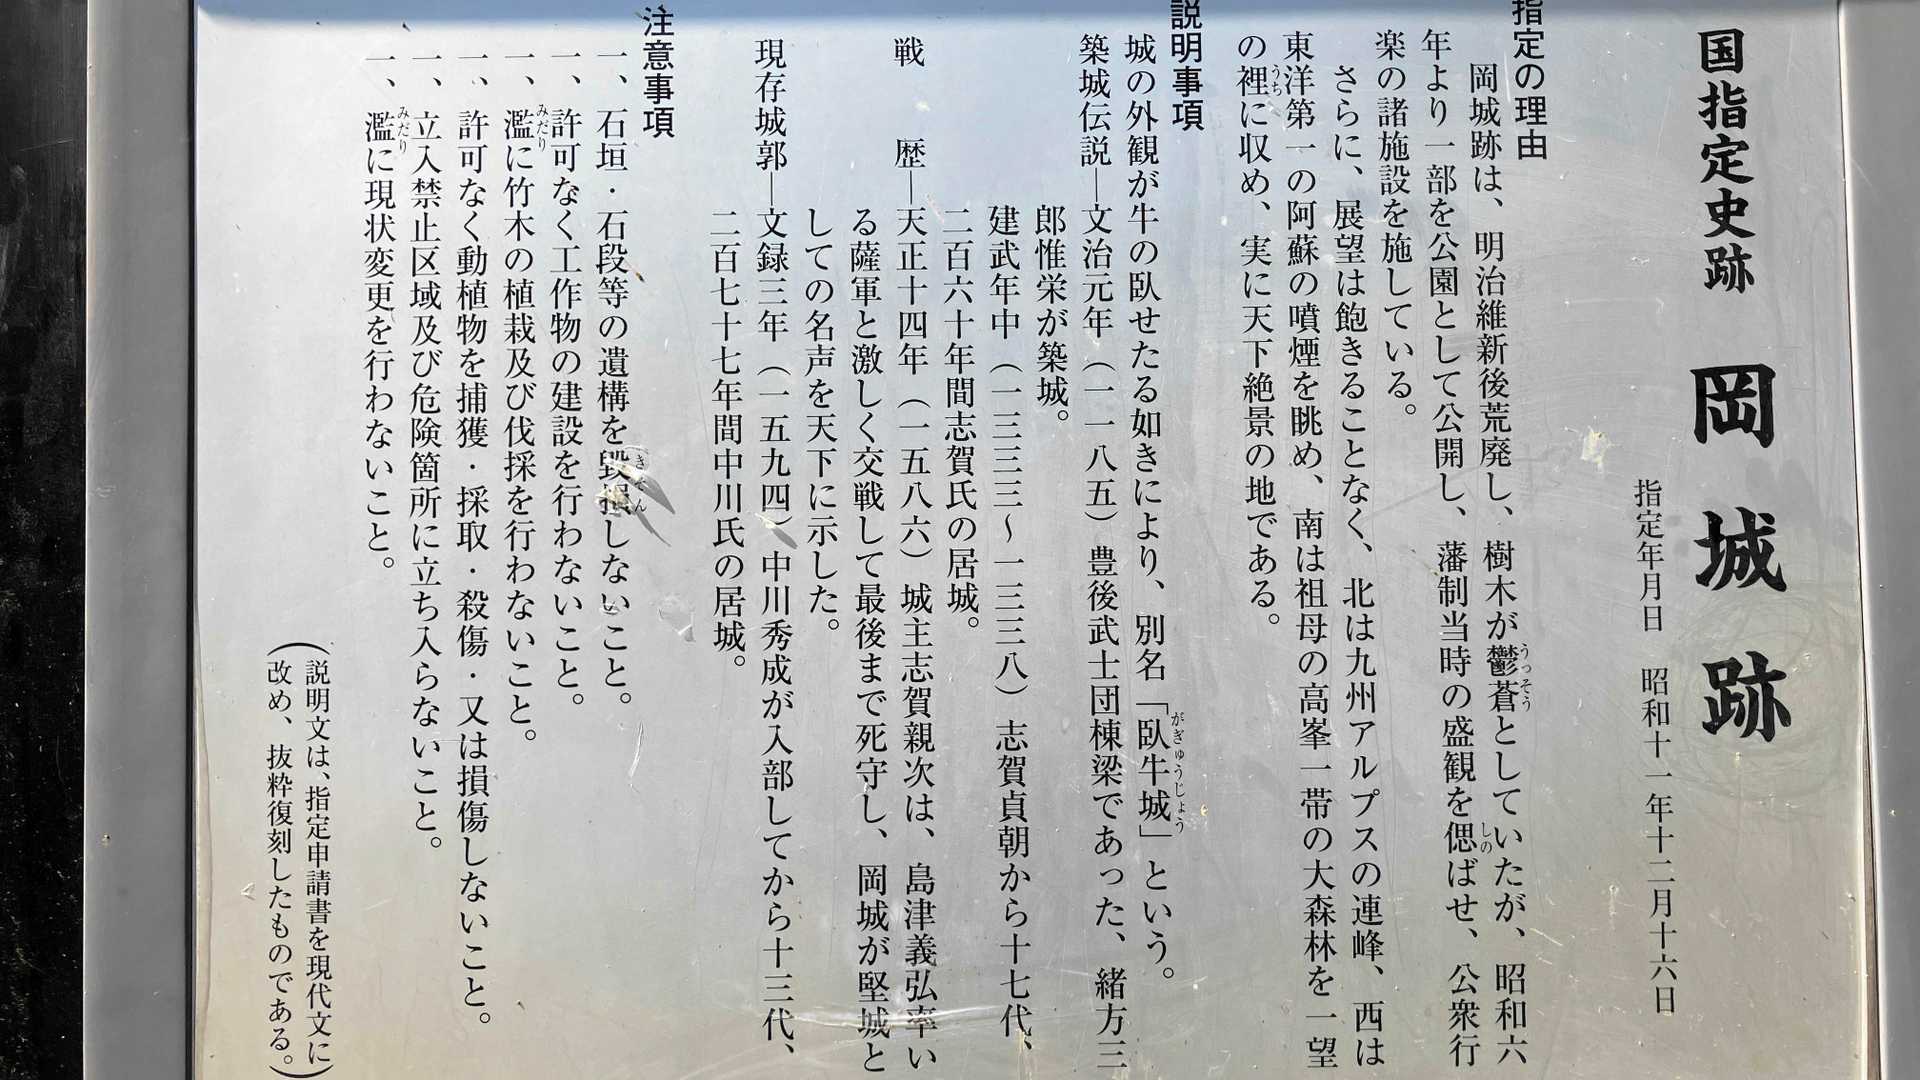 国指定史跡　岡城跡
指定年月日　昭和十一年十二月十六日
指定の理由
岡城跡は、明治維新後荒廃し、樹木が鬱蒼としていたが、昭和六
年より一部を公園として公開し、藩制当時の盛観を偲ばせ、公衆行
楽の諸施設を施している。
さらに、展望は飽きることなく、北は九州アルプスの連峰、西は
東洋第一の阿蘇の噴煙を眺め、南は祖母の高峯一帯の大森林を一望
の裡に収め、実に天下絶景の地である。
説明事項
城の外観が牛の臥せたる如きにより、別名「臥牛城」という。
築城伝説―文治元年（一一八五）豊後武士団棟梁であった、緒方三
郎惟栄が築城。
建武年中（一三三三～一三三八）志賀貞朝から十七代、
二百六十年間志賀氏の居城。
戦　歴―天正十四年（一五八六）城主志賀親次は、島津義弘率い
る薩軍と激しく交戦して最後まで死守し、岡城が堅城と
しての名声を天下に示した。
現存城郭―文録三年（一五九四）中川秀成が入部してから十三代、
二百七十七年間中川氏の居城。
注意事項
一、石垣・石段等の遺構を毀損しないこと。
一、許可なく工作物の建設を行わないこと。
一、濫に竹木の植栽及び伐採を行わないこと。
一、許可なく動植物を捕獲・採取・殺傷・又は損傷しないこと。
一、立入禁止区域及び危険箇所に立ち入らないこと。
一、濫に現状変更を行わないこと。
（説明文は、指定申請書を現代文に
改め、抜粋復刻したものである。）